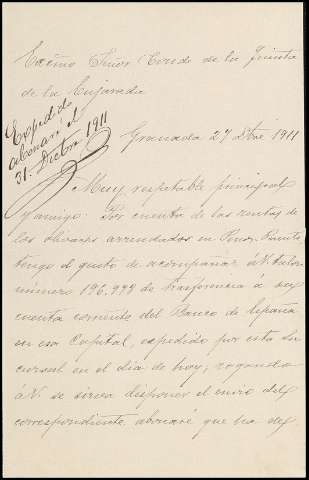 Exćmo Señor Conde de la Quinta
de la Enjarada
Expedido
abonaré el
31. Dictre 1911
Granada 27 Dbre 1911
Muy respetable principal
y amigo: Por cuenta de las rentas de
los Olivares arrendados en Pinos-Puente,
tengo el gusto de acompañar á V. talon
número 196.993 de trasferencia á su
cuenta corriente del Banco de España
en esa Capital, expedido por esta Su
cursal en el dia de hoy; rogando
á V. se sirva disponer el envio del
correspondiente abonaré que ha de